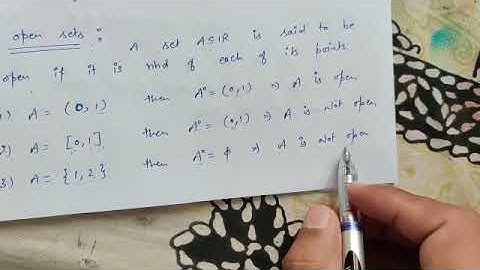 open sets : A set A⊆IR is said to be
open if it is nhd of each of its points.
1) A = (0, 1) then A° = (0,1) ⇒ A is open
2) A = [0,1]. then A° = (0,1) ⇒ A is Not open
3) A = {1, 2} then A° = ϕ ⇒ A is Not open